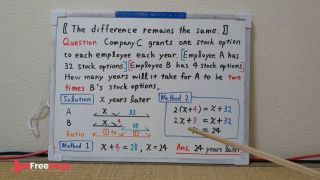 〖 The difference remains the same. 〗
Question Company C grants one stock option
to each employee each year. Employee A has
32 stock options. Employee B has 4 stock options.
How many years will it take for A to be two
times B's stock options.
Solution x years later
A x 32
B x 4 28
Ratio
Method 1 x+4 = 28, x = 24
Method 2
2(x+4) = x+32
2x+8 = x+32
= 24
Ans. 24 years later